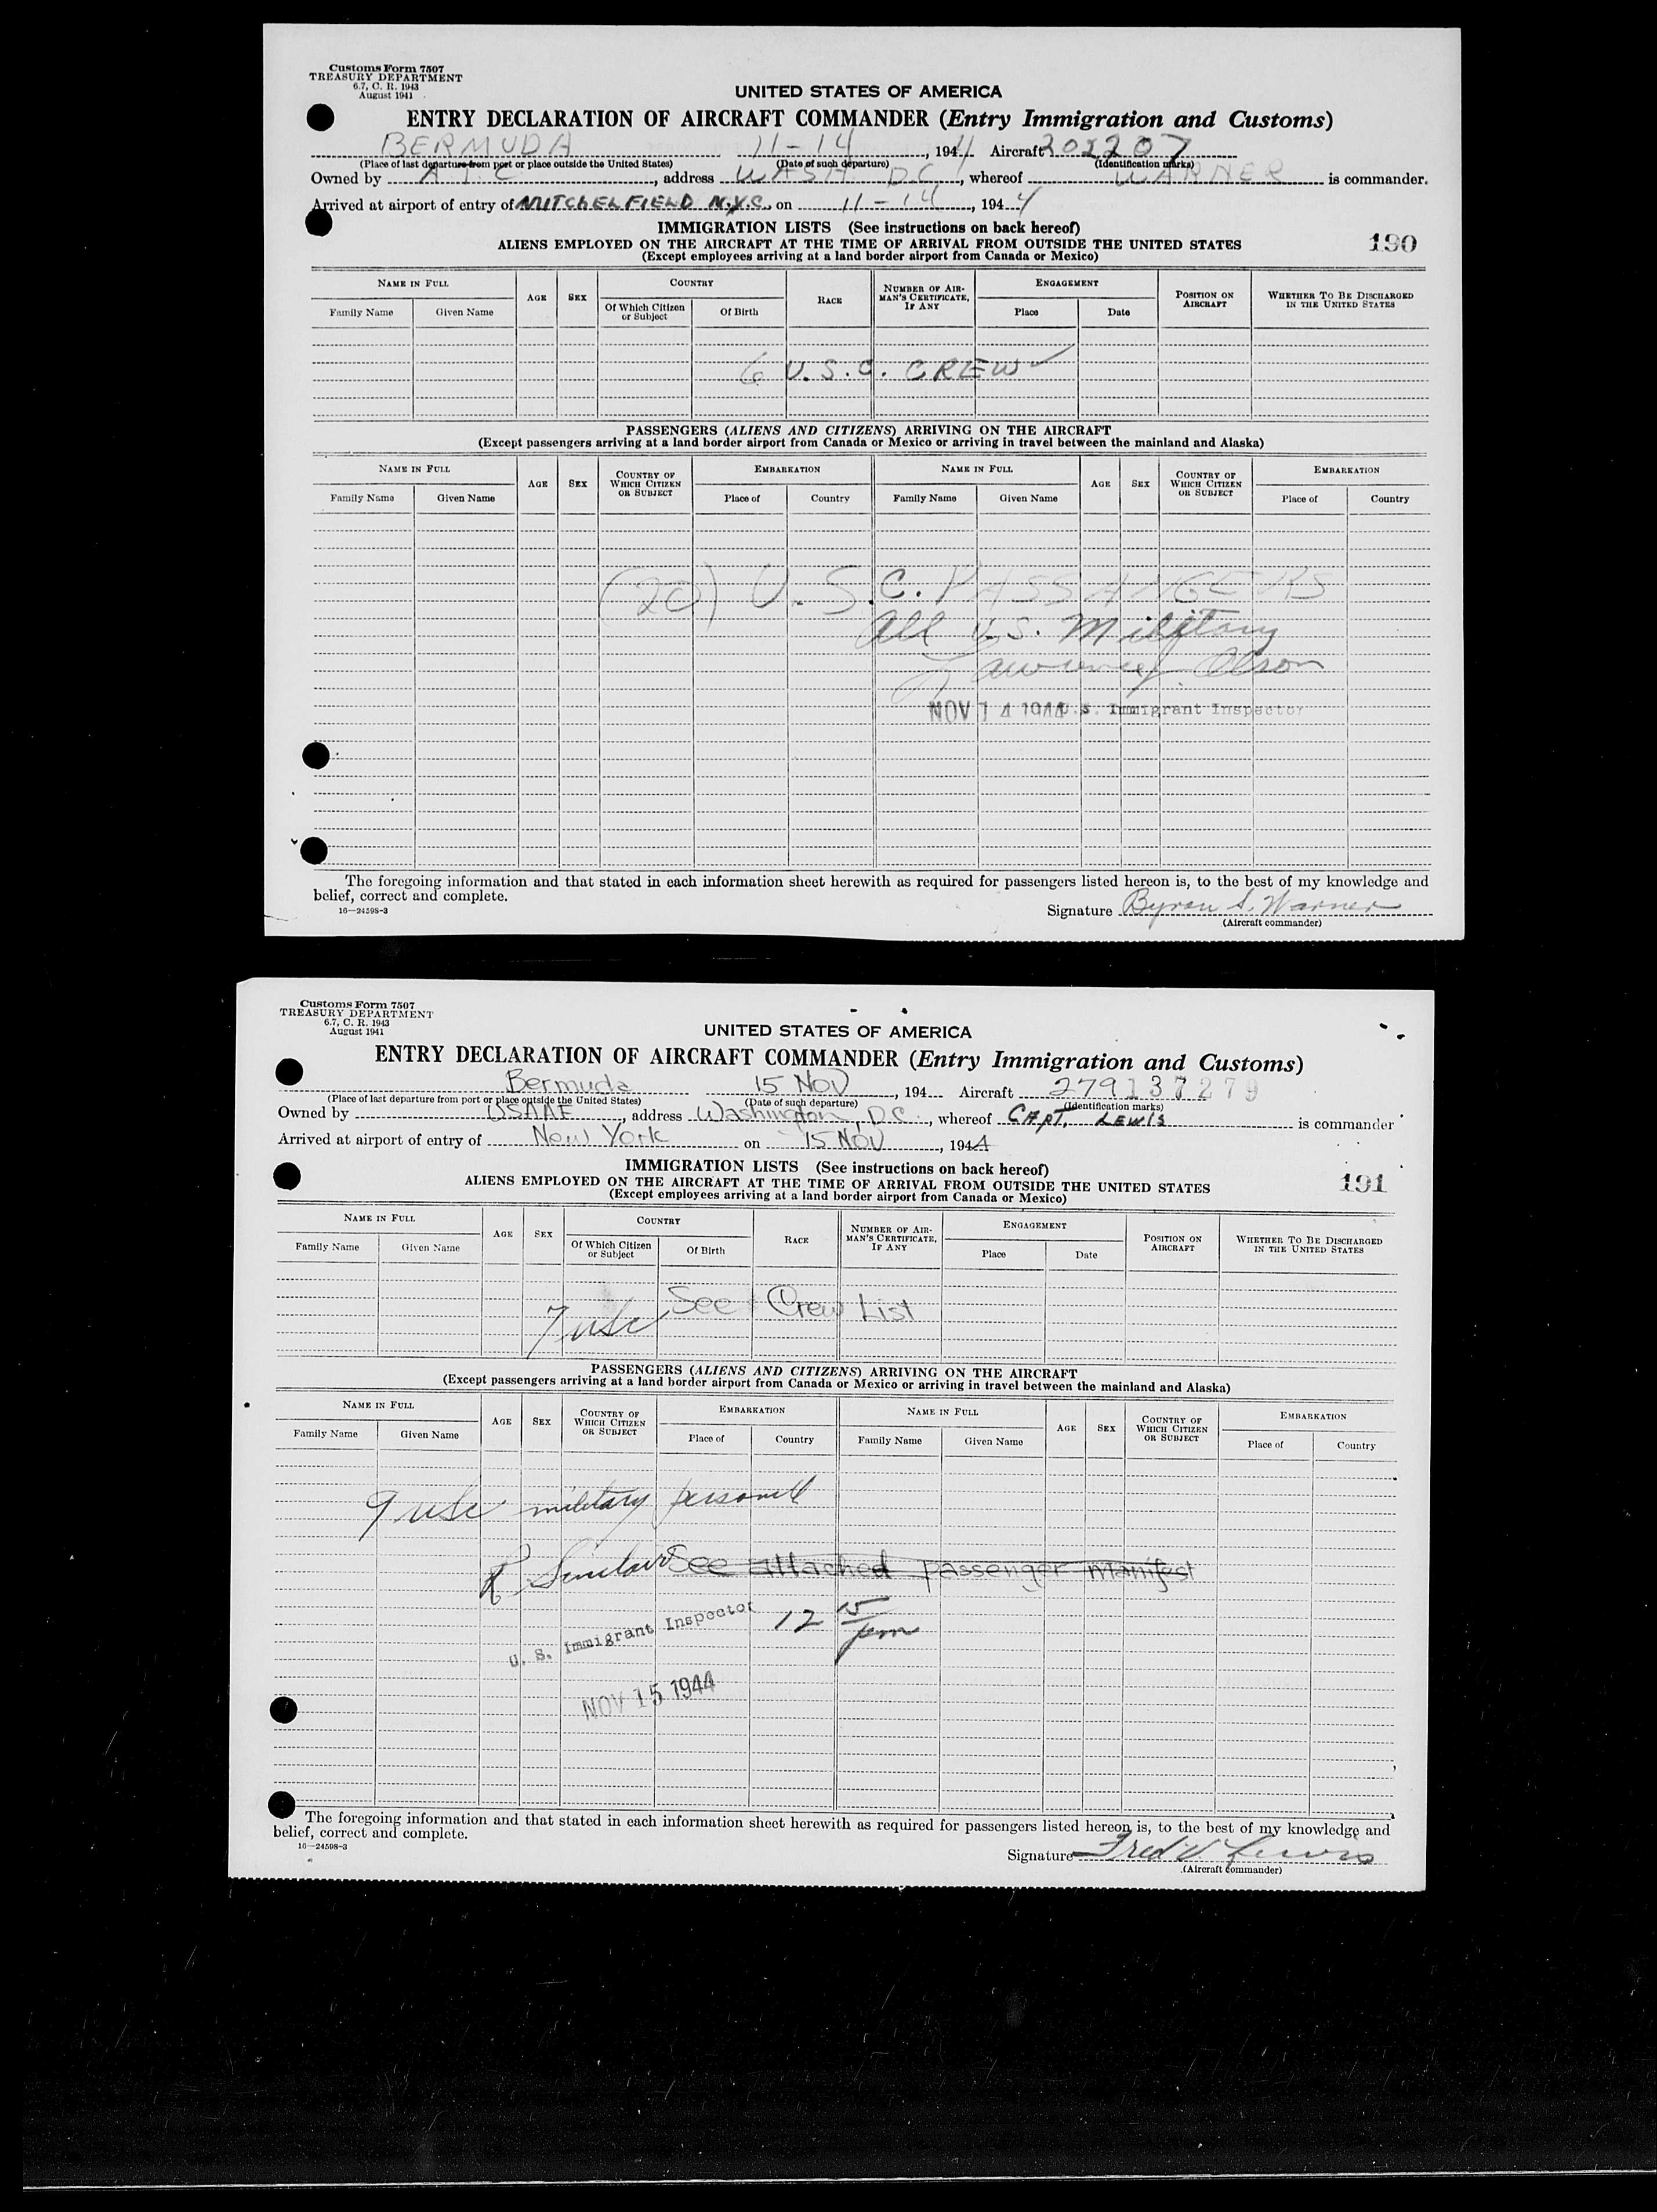 Customs Form 7507
TREASURY DEPARTMENT
6.7, C. R. 1943
August 1941
UNITED STATES OF AMERICA
ENTRY DECLARATION OF AIRCRAFT COMMANDER (Entry Immigration and Customs)
BERMUDA 11-14, 1944 Aircraft 202207
(Place of last departure from port or place outside the United States) (Date of such departure) (Identification marks)
Owned by A.T.C., address WASH D.C., whereof WARNER is commander.
Arrived at airport of entry of MITCHEL FIELD N.Y.C. on 11-14, 1944
IMMIGRATION LISTS (See instructions on back hereof)
ALIENS EMPLOYED ON THE AIRCRAFT AT THE TIME OF ARRIVAL FROM OUTSIDE THE UNITED STATES
190
(Except employees arriving at a land border airport from Canada or Mexico)
NAME IN FULL AGE SEX COUNTRY RACE NUMBER OF AIRMAN'S CERTIFICATE, IF ANY ENGAGEMENT POSITION ON AIRCRAFT WHETHER TO BE DISCHARGED IN THE UNITED STATES
Family Name Given Name Of Which Citizen or Subject Of Birth Place Date
6 U.S.C. CREW
PASSENGERS (ALIENS AND CITIZENS) ARRIVING ON THE AIRCRAFT
(Except passengers arriving at a land border airport from Canada or Mexico or arriving in travel between the mainland and Alaska)
NAME IN FULL AGE SEX COUNTRY OF WHICH CITIZEN OR SUBJECT EMBARKATION NAME IN FULL AGE SEX COUNTRY OF WHICH CITIZEN OR SUBJECT EMBARKATION
Family Name Given Name Place of Country Family Name Given Name Place of Country
(20) U.S.C. PASSANGERS
All U.S. Military
Lawrence J. Olson
NOV 14 1944 U.S. Immigrant Inspector
The foregoing information and that stated in each information sheet herewith as required for passengers listed hereon is, to the best of my knowledge and
belief, correct and complete.
16—24598-3
Signature Byron S. Warner
(Aircraft commander)
Customs Form 7507
TREASURY DEPARTMENT
6.7, C. R. 1943
August 1941
UNITED STATES OF AMERICA
ENTRY DECLARATION OF AIRCRAFT COMMANDER (Entry Immigration and Customs)
Bermuda 15 NOV, 194 Aircraft 279137279
(Place of last departure from port or place outside the United States) (Date of such departure) (Identification marks)
Owned by USAAF, address Washington, D.C., whereof CAPT. LEWIS is commander
Arrived at airport of entry of New York on 15 NOV, 1944
IMMIGRATION LISTS (See instructions on back hereof)
ALIENS EMPLOYED ON THE AIRCRAFT AT THE TIME OF ARRIVAL FROM OUTSIDE THE UNITED STATES
191
(Except employees arriving at a land border airport from Canada or Mexico)
NAME IN FULL AGE SEX COUNTRY RACE NUMBER OF AIRMAN'S CERTIFICATE, IF ANY ENGAGEMENT POSITION ON AIRCRAFT WHETHER TO BE DISCHARGED IN THE UNITED STATES
Family Name Given Name Of Which Citizen or Subject Of Birth Place Date
See Crew List
7 usc
PASSENGERS (ALIENS AND CITIZENS) ARRIVING ON THE AIRCRAFT
(Except passengers arriving at a land border airport from Canada or Mexico or arriving in travel between the mainland and Alaska)
NAME IN FULL AGE SEX COUNTRY OF WHICH CITIZEN OR SUBJECT EMBARKATION NAME IN FULL AGE SEX COUNTRY OF WHICH CITIZEN OR SUBJECT EMBARKATION
Family Name Given Name Place of Country Family Name Given Name Place of Country
9 usc military personell
R Sinclair See attached passenger manifest
U. S. Immigrant Inspector 12 15 pm
NOV 15 1944
The foregoing information and that stated in each information sheet herewith as required for passengers listed hereon is, to the best of my knowledge and
belief, correct and complete.
16—24598-3
Signature Fred V Lewis
(Aircraft commander)